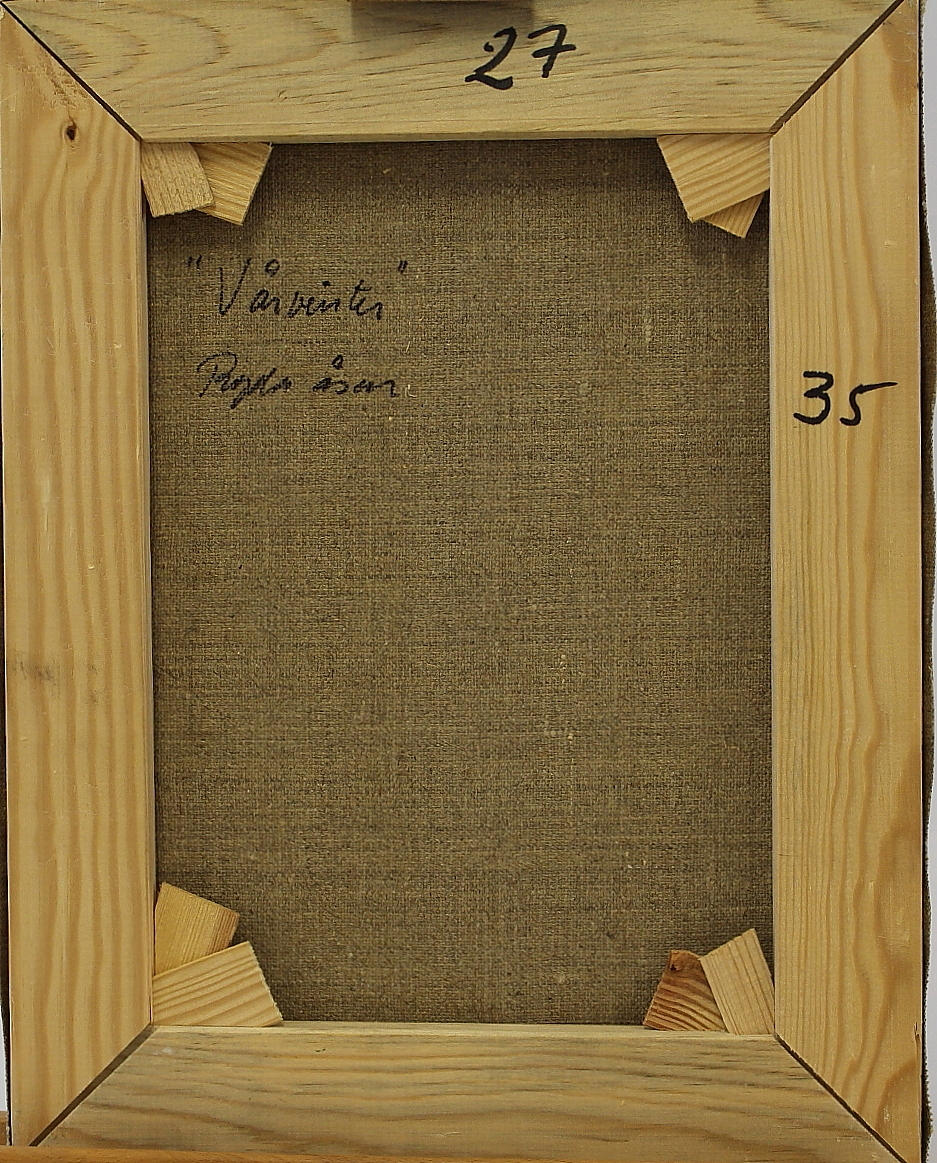 27
"Vårvinter"
åsen
35